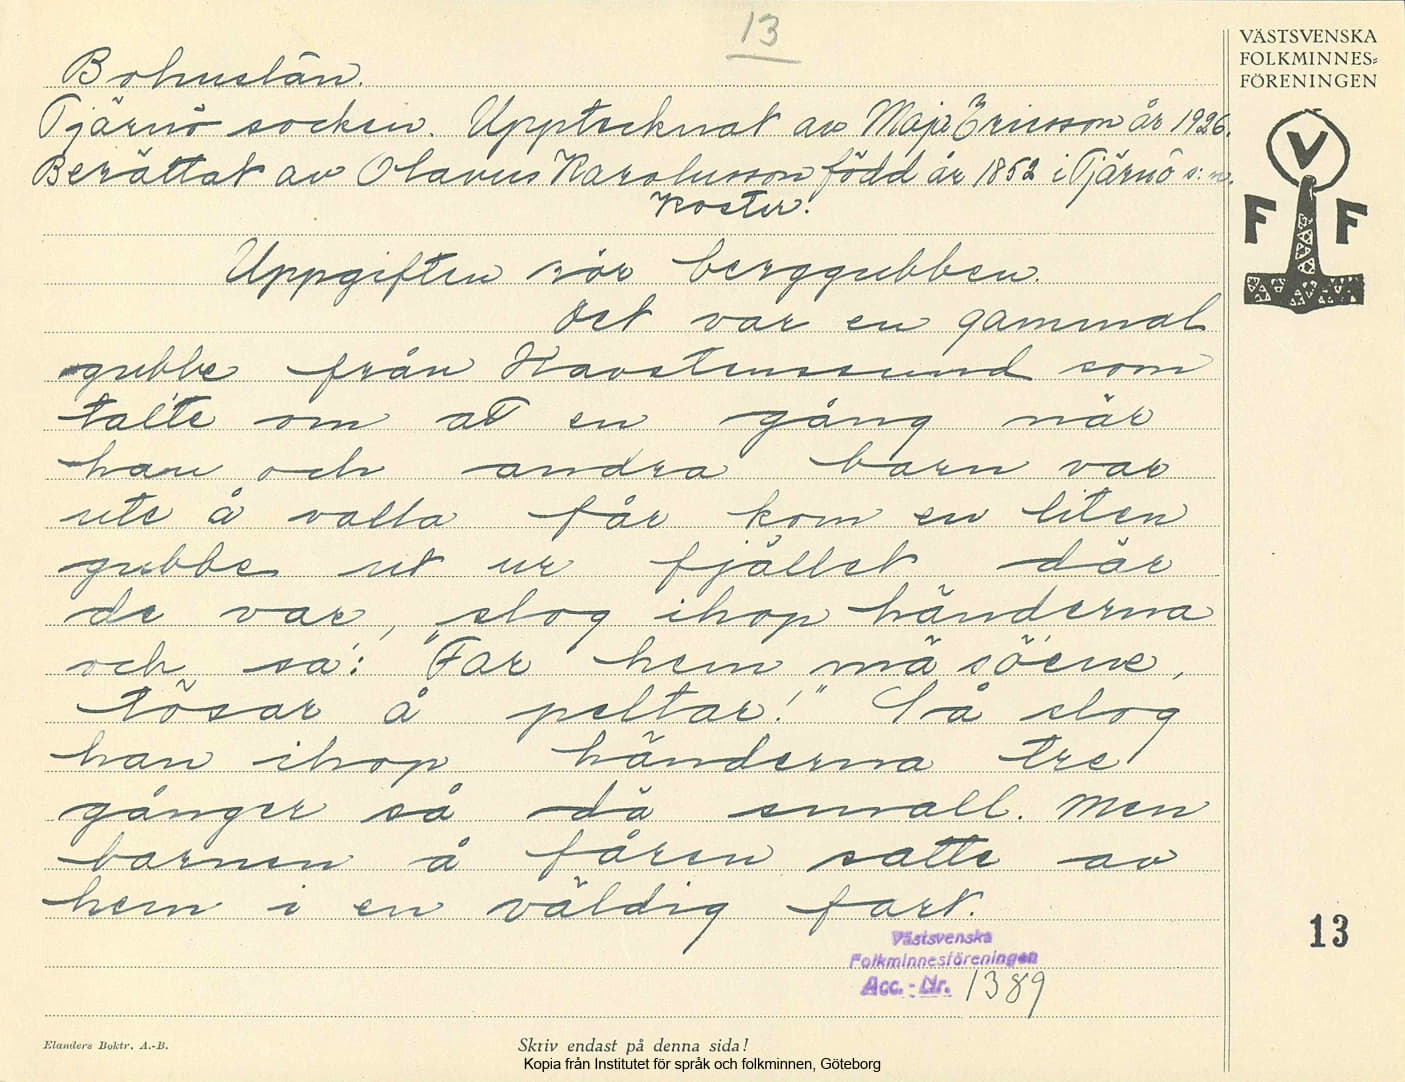 13
VÄSTSVENSKA
FOLKMINNES=
FÖRENINGEN
V
F F
Bohuslän.
Tjärnö socken. Upptecknat av Maja Ericsson år 1926.
Berättat av Olavus Karolusson född år 1852 i Tjärnö s:n.
Koster.
Uppgiften rör berggubben.
Det var en gammal
gubbe från Havstenssund som
tal'te om at en gång när
han och andra barn var
ute å valla får kom en liten
gubbe ut ur fjället där
de var, slog ihop händerna
och sa: "Far hem mä söene,
tösar å peltar!" Så slog
han ihop händerna tre
gånger så dä small. Men
barnen å fåren satte av
hem i en väldig fart.
13
Västsvenska
Folkminnesföreningen
Acc. - Nr. 1389
Elanders Boktr. A.-B.
Skriv endast på denna sida!
Kopia från Institutet för språk och folkminnen, Göteborg